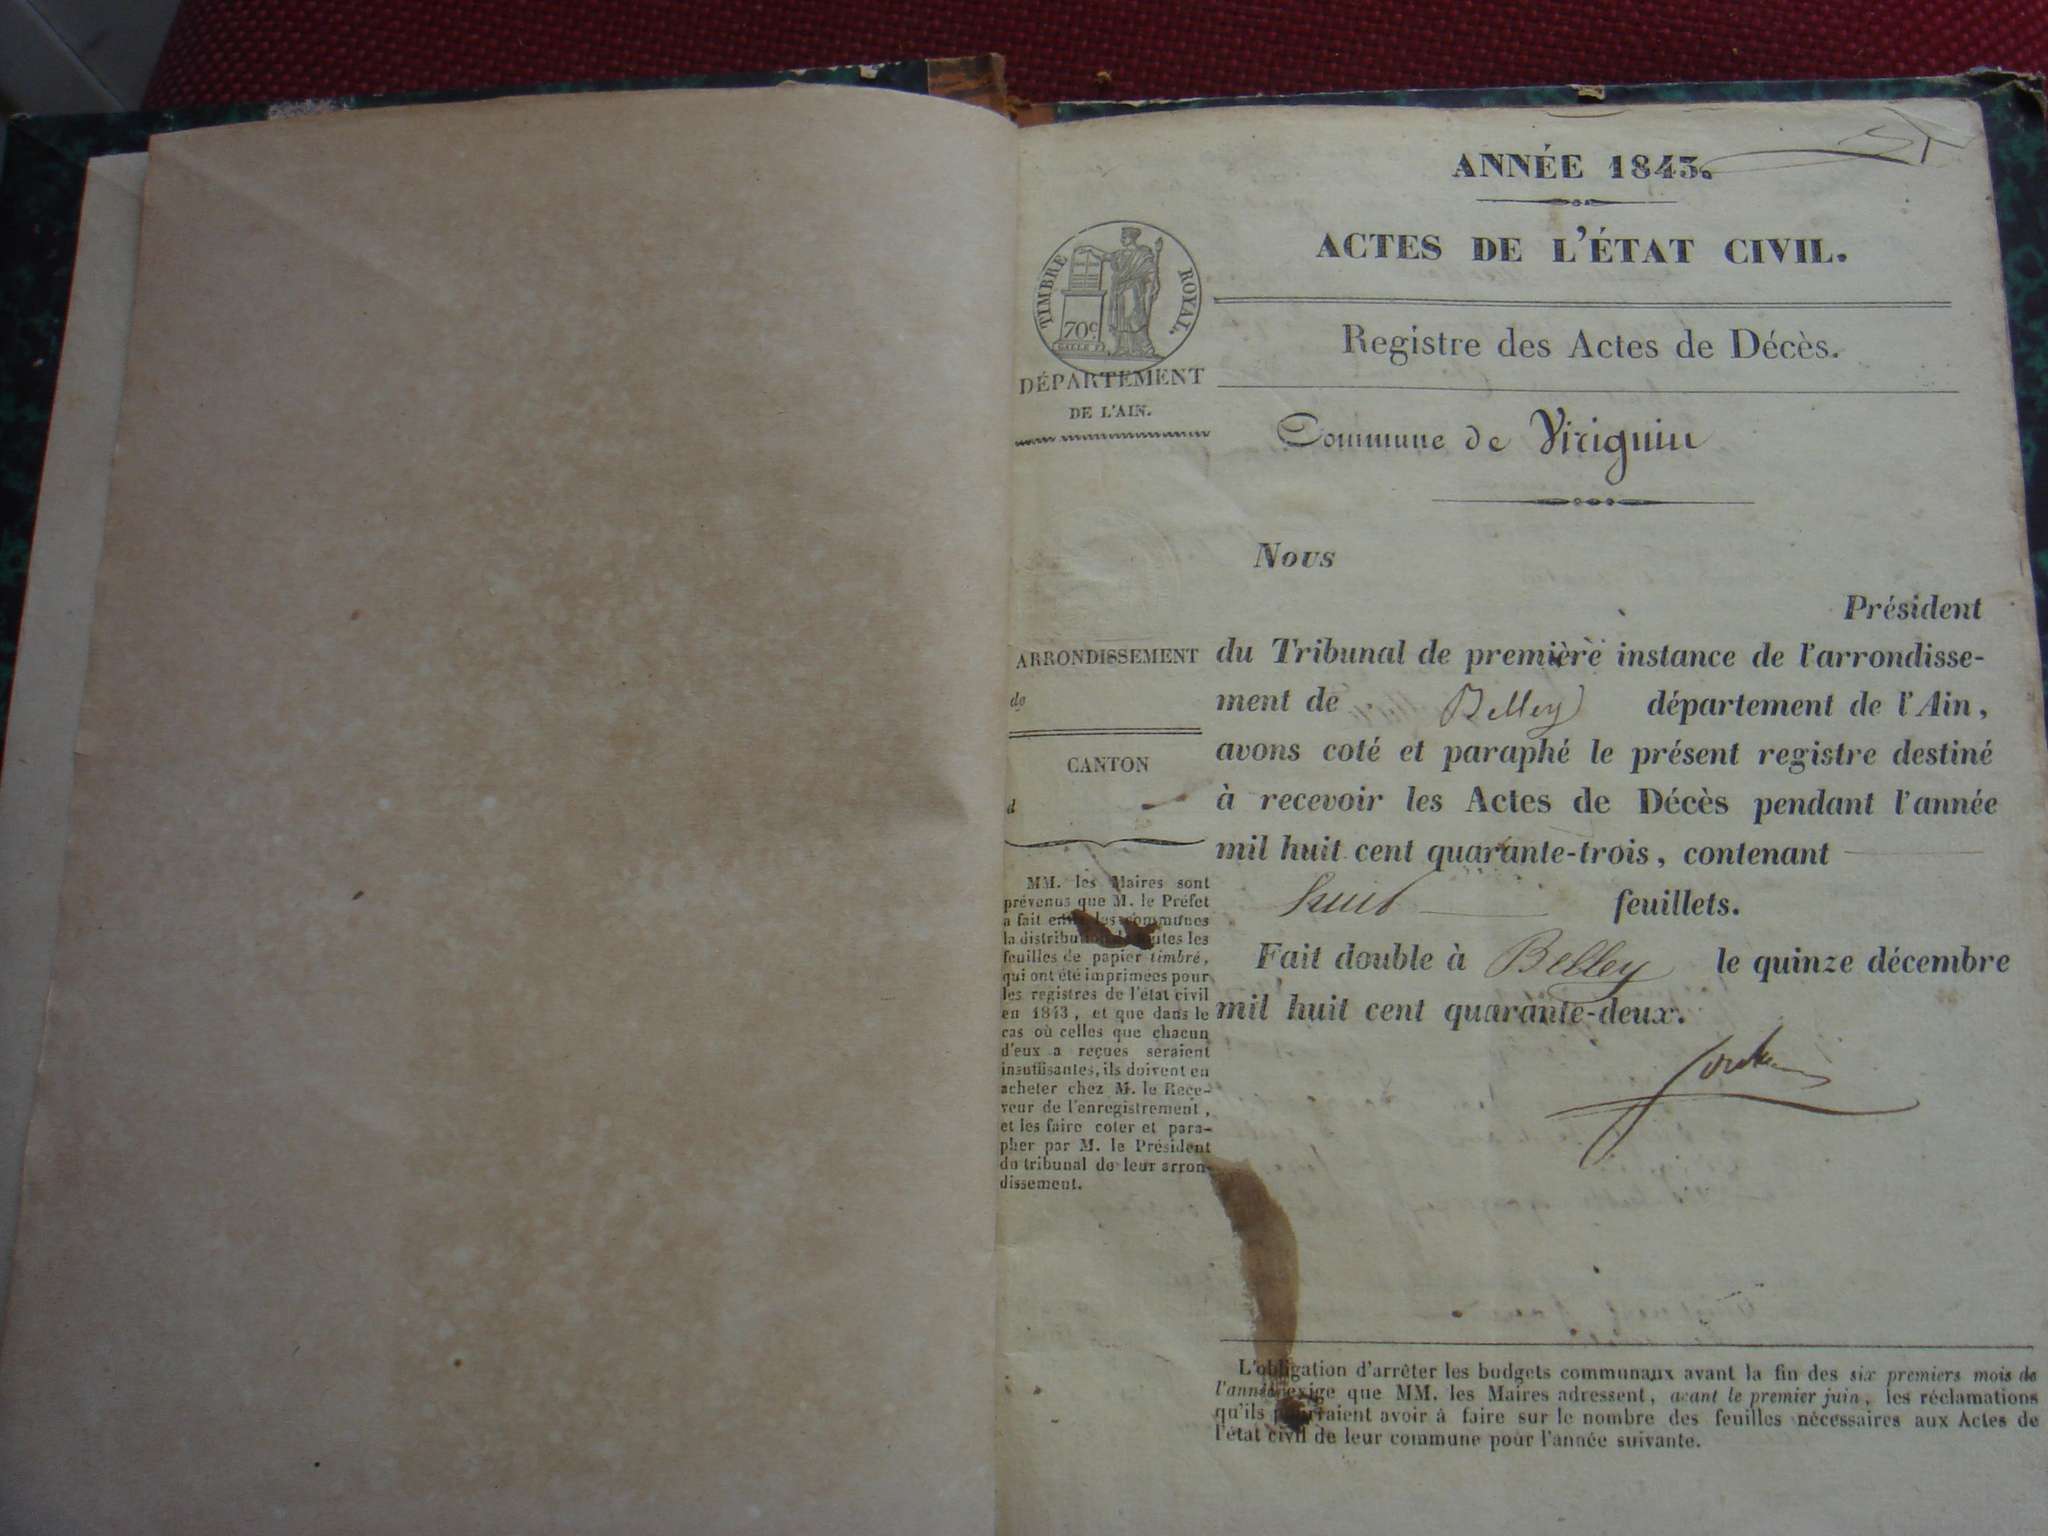 ANNÉE 1843.
ACTES DE L'ÉTAT CIVIL.
TIMBRE ROYAL.
70c
Registre des Actes de Décès.
DÉPARTEMENT
DE L'AIN.
Commune de Virignin
Nous
Président
ARRONDISSEMENT
de
CANTON
d
du Tribunal de première instance de l'arrondisse-
ment de Belley département de l'Ain,
avons coté et paraphé le présent registre destiné
à recevoir les Actes de Décès pendant l'année
mil huit cent quarante-trois, contenant
huit feuillets.
Fait double à Belley le quinze décembre
mil huit cent quarante-deux.
MM. les Maires sont
prévenus que M. le Préfet
a fait entre les communes
la distribution de toutes les
feuilles de papier timbré,
qui ont été imprimées pour
les registres de l'état civil
en 1843, et que dans le
cas où celles que chacun
d'eux a reçues seraient
insuffisantes, ils doivent en
acheter chez M. le Rece-
veur de l'enregistrement,
et les faire coter et para-
pher par M. le Président
du tribunal de leur arron-
dissement.
L'obligation d'arrêter les budgets communaux avant la fin des six premiers mois de
l'année exige que MM. les Maires adressent, avant le premier juin, les réclamations
qu'ils pourraient avoir à faire sur le nombre des feuilles nécessaires aux Actes de
l'état civil de leur commune pour l'année suivante.